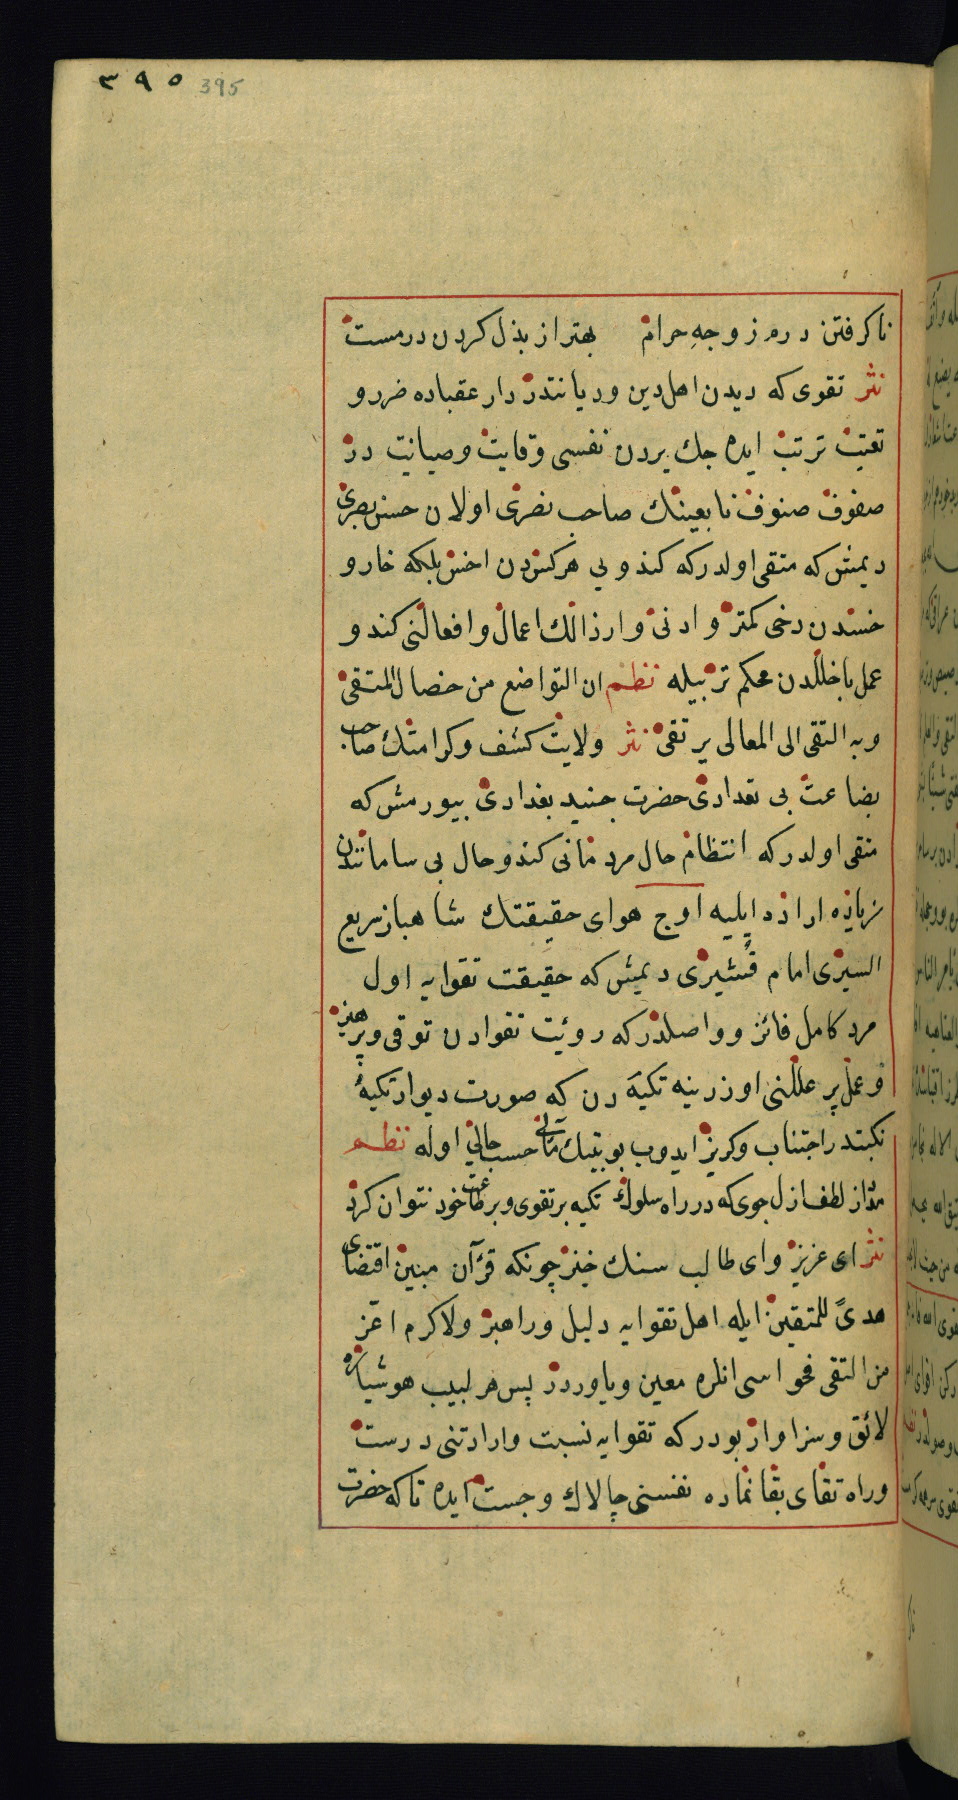 ٣٩٥ 395
ناكرفتن درم ز وجهِ حرام بهتر از بذل كردن درمست
نثر تقوى كه ديدن اهل دين و ديانتدر دار عقباده ضرر و
تعب ترتب ايده جك يردن نفسى وقايت وصيانت در
صفوف صنوف تابعينك صاحب نصرى اولان حسن بصرى
ديمش كه متقى اولدركه كندويى هر كسدن اخس بلكه خار و
خسدن دخى كمتر و ادنى و ارذالك اعمال و افعالنى كندو
عمل باخللدن محكم تر بيله نظم ان التواضع من خصال المتقى
وبه التقى الى المعالى يرتقى نثر ولايت كشف وكرامتك صاحب
بضاعت بى تعدادى حضرت جنيد بغدادى بيورمش كه
متقى اولدركه انتظام حال مردمانى كندو حال بى سامانندن
زياده اراده ايليه اوج هواى حقيقتك شاهباز سريع
السيرى امام قُشيرى ديمش كه حقيقت تقوايه اول
مرد كامل فائز و واصلدركه رؤيت تقوادن توقى وپرهيز
و عمل پر عللنى اوزرينه تكيه دن كه صورت ديوار تكيهٔ
نكبتدر اجتناب وكريز ايدوب بو بيتك مآلى حسب حالى اوله نظم
مدد از لطف ازل جوى كه در راه سلوك تكيه بر تقوى و بر طاعت خود نتوان كرد
نثر اى عزيز واى طالب سنك خيز چونكه قرآن مبين اقتضاى
هدىً للمتقين ايله اهل تقوايه دليل و راهبر ولا كرم اعز
من التقى فحواسى انلره معين و ياوردر پس هر لبيب هوشياره
لائق و سزاوار بودركه تقوايه نسبت و ارادتنى درست
و راه تقاى بقانماده نفسنى چالاك و جست ايده تاكه حضرت